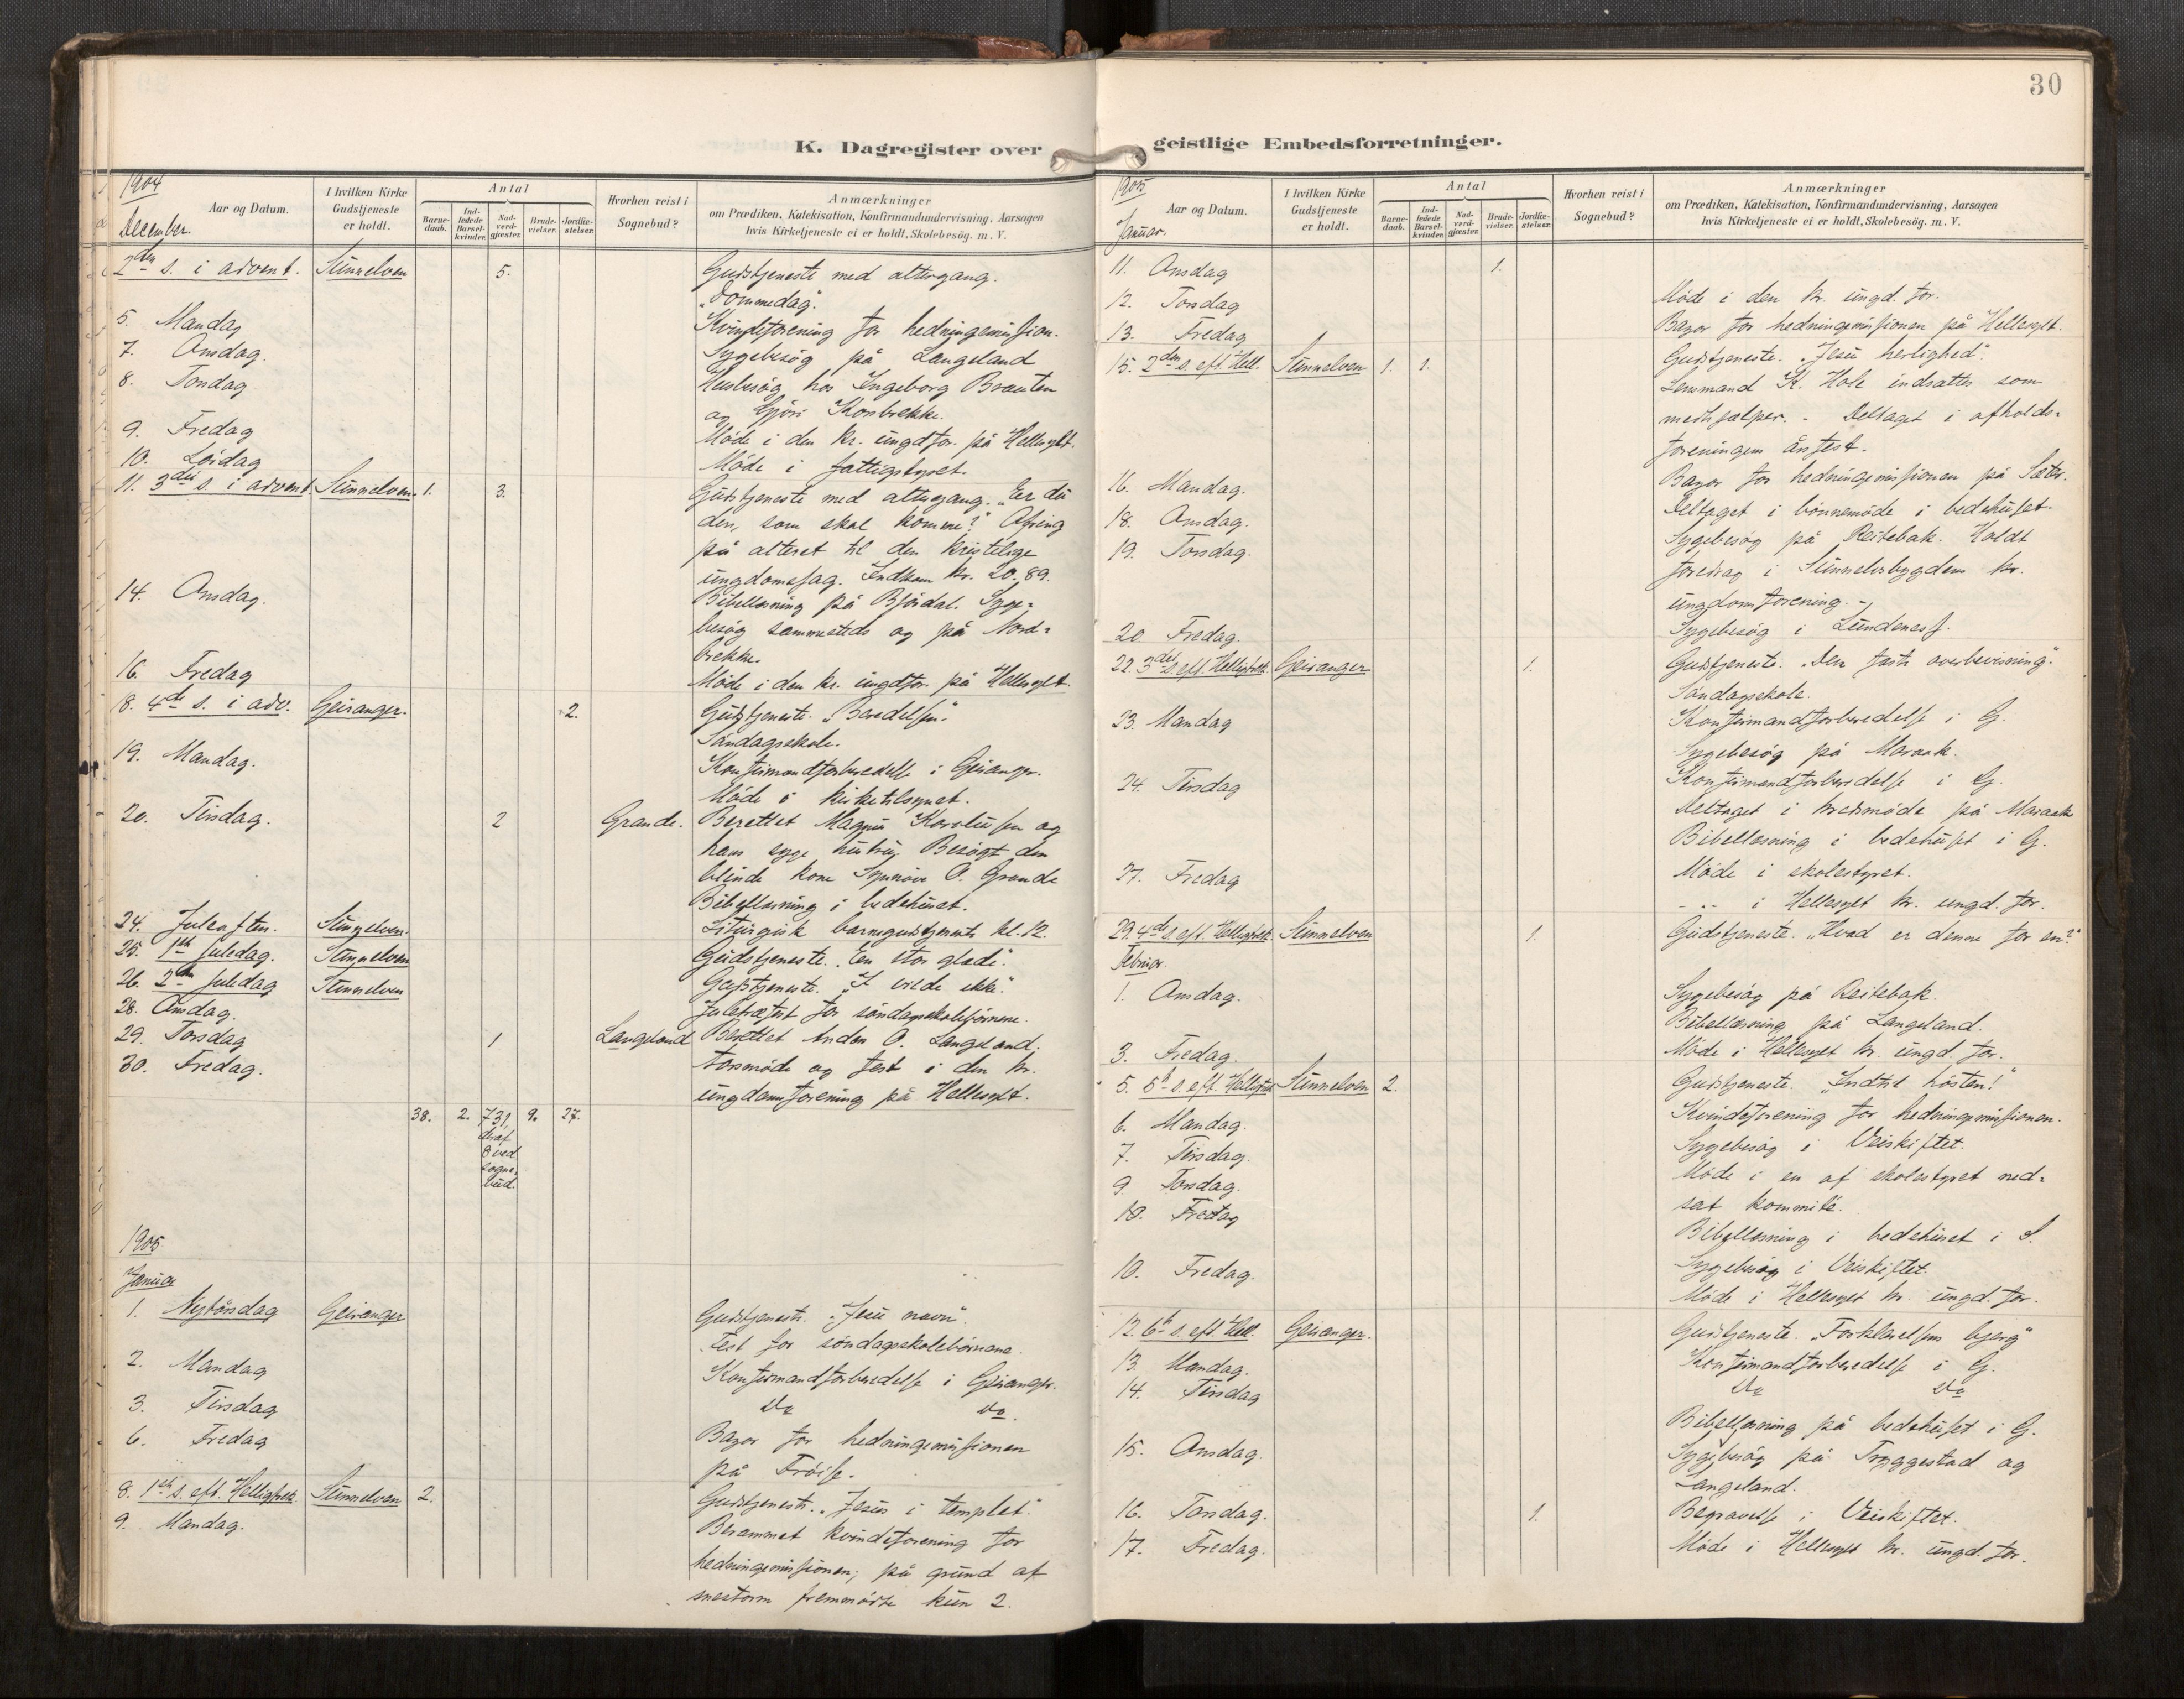 30
K. Dagregister over geistlige Embedsforretninger.
1904
Desember.
Aar og Datum.
I hvilken Kirke Gudstjeneste er holdt.
Antal
Barnedaab.
Indledede Barselkvinder.
Nadverdgjæster.
Brudevielser.
Jordfæstelser.
Hvorhen reist i Sognebud?
Anmærkninger
om Prædiken, Katekisation, Konfirmandundervisning, Aarsagen
hvis Kirketjeneste ei er holdt, Skolebesög. m. V.
2den s. i advent. Sunnelven 5. Gudstjeneste med altergang.
"Dommedag".
5. Mandag Kvindeforening for hedningemission.
7. Onsdag. Sygebesøg på Langeland
8. Torsdag Husbesøg hos Ingeborg Brauten
og Gjøri Korsbrekke.
9. Fredag Møde i den kr. ungdfor. på Hellesylt.
10. Lørdag Møde i fattigstyret.
11. 3die s. i advent Sunnelven. 1. 3. Gudstjeneste med altergang. "Er du
den, som skal komme?" Ofring
på alteret til den kristelige
ungdomssag. Indkom kr. 20,89.
14. Onsdag. Bibellæsning på Bjørdal. Syge=
besøg sammesteds og på Nord=
brekke.
16. Fredag Møde i den kr. ungdfor. på Hellesylt.
18. 4de s. i adv. Geiranger. 2. Gudstjeneste.
Søndagsskole.
19. Mandag. Konfirmandforberedelse i Geiranger.
Møde i kirketilsynet.
20. Tirsdag. 2 Grande. Berettet Magnus Korsløssen og
hans syge hustru. Besøgt den
blinde kone Synnøve O. Grande
Bibellæsning i bedehuset.
24. Juleaften. Sunnelven. Liturgisk barnegudstjeneste kl. 12.
25. 1ste juledag. Sunnelven Gudstjeneste. "En stor glæde".
26. 2den juledag Sunnelven Gudstjeneste. "I vilde ikke".
28. Onsdag. Juletræfest for søndagsskolebørnene.
29. Torsdag 1 Langeland Berettet Anders O. Langeland.
30. Fredag. Årsmøde og fest i den kr.
ungdomsforening på Hellesylt.
38. 2. 731, 9. 27.
deraf
8 ved
sogne-
bud.
1905
Januar
1. Nytårsdag Geiranger Gudstjeneste. "Jesu navn".
Fest for søndagsskolebørnene.
2. Mandag Konfirmandforberedelse i Geiranger.
3. Tirsdag Do Do.
6. Fredag Bazar for hedningemissionen
på Frøise.
8. 1ste s. eft. Helligtrek. Sunnelven 2. Gudstjeneste. "Jesus i templet".
9. Mandag. Berammet kvindeforening for
hedningemissionen; på grund af
snestorm fremmødte kun 2.
1905
Januar.
Aar og Datum.
I hvilken Kirke Gudstjeneste er holdt.
Antal
Barnedaab.
Indledede Barselkvinder.
Nadverdgjæster.
Brudevielser.
Jordfæstelser.
Hvorhen reist i Sognebud?
Anmærkninger
om Prædiken, Katekisation, Konfirmandundervisning, Aarsagen
hvis Kirketjeneste ei er holdt, Skolebesög. m. V.
11. Onsdag 1.
12. Torsdag Møde i den kr. ungd. for.
13. Fredag Bazar for hedningemissionen på Hellesylt.
15. 2den s. eft. Hell. Sunnelven 1. 1. Gudstjeneste. "Jesu herlighed".
Lensmand K. Hole indsattes som
medhjælper. - Deltaget i afholds=
foreningens årsfest.
16. Mandag. Bazar for hedningemissionen på Sæter.
18. Onsdag. Deltaget i bønnemøde i bedehuset.
19. Torsdag. Sygebesøg på Reitebak. Holdt
foredrag i Sunnelvsbygdens kr.
ungdomsforening. -
20. Fredag. Sygebesøg i Lundenesf.
22. 3die s. eft. Helligtrek. Geiranger 1. Gudstjeneste. "Den faste overbevisning".
Søndagsskole.
23. Mandag Konfirmandforberedelse i G.
Sygebesøg på Maraak.
24. Tirsdag Konfirmandforberedelse i G.
Deltaget i kredsmøde på Maraak
Bibellæsning i bedehuset i G.
27. Fredag Møde i skolestyret.
- .. - i Hellesylt kr. ungd. for.
29. 4de s. eft. Helligtrek. Sunnelven 1. Gudstjeneste. "Hvad er denne for en?"
Februar.
1. Onsdag. Sygebesøg på Reitebak.
Bibellæsning på Langeland.
3. Fredag. Møde i Hellesylt kr. ungd. for.
5. 5te s. eft. Helligtrek Sunnelven 2. Gudstjeneste. "Indtil høsten!"
6. Mandag. Kvindeforening for hedningemissionen.
7. Tirsdag. Sygebesøg i Veiskiftet.
9. Torsdag. Møde i en af skolestyret ned=
sat kommité.
10. Fredag
Bibellæsning i bedehuset i S.
10. Fredag. Sygebesøg i Veiskiftet.
Møde i Hellesylt kr. ungd. for.
12. 6te s. eft. Hell. Geiranger. Gudstjeneste. "Forklarelsens bjerg"
13. Mandag. Konfirmandforberedelse i G.
14. Tirsdag Do Do
Bibellæsning på bedehuset i G.
15. Onsdag. Sygebesøg på Tryggestad og
Langeland.
16. Torsdag. 1. Begravelse i Veiskiftet.
17. Fredag. Møde i Hellesylt kr. ungd. for.